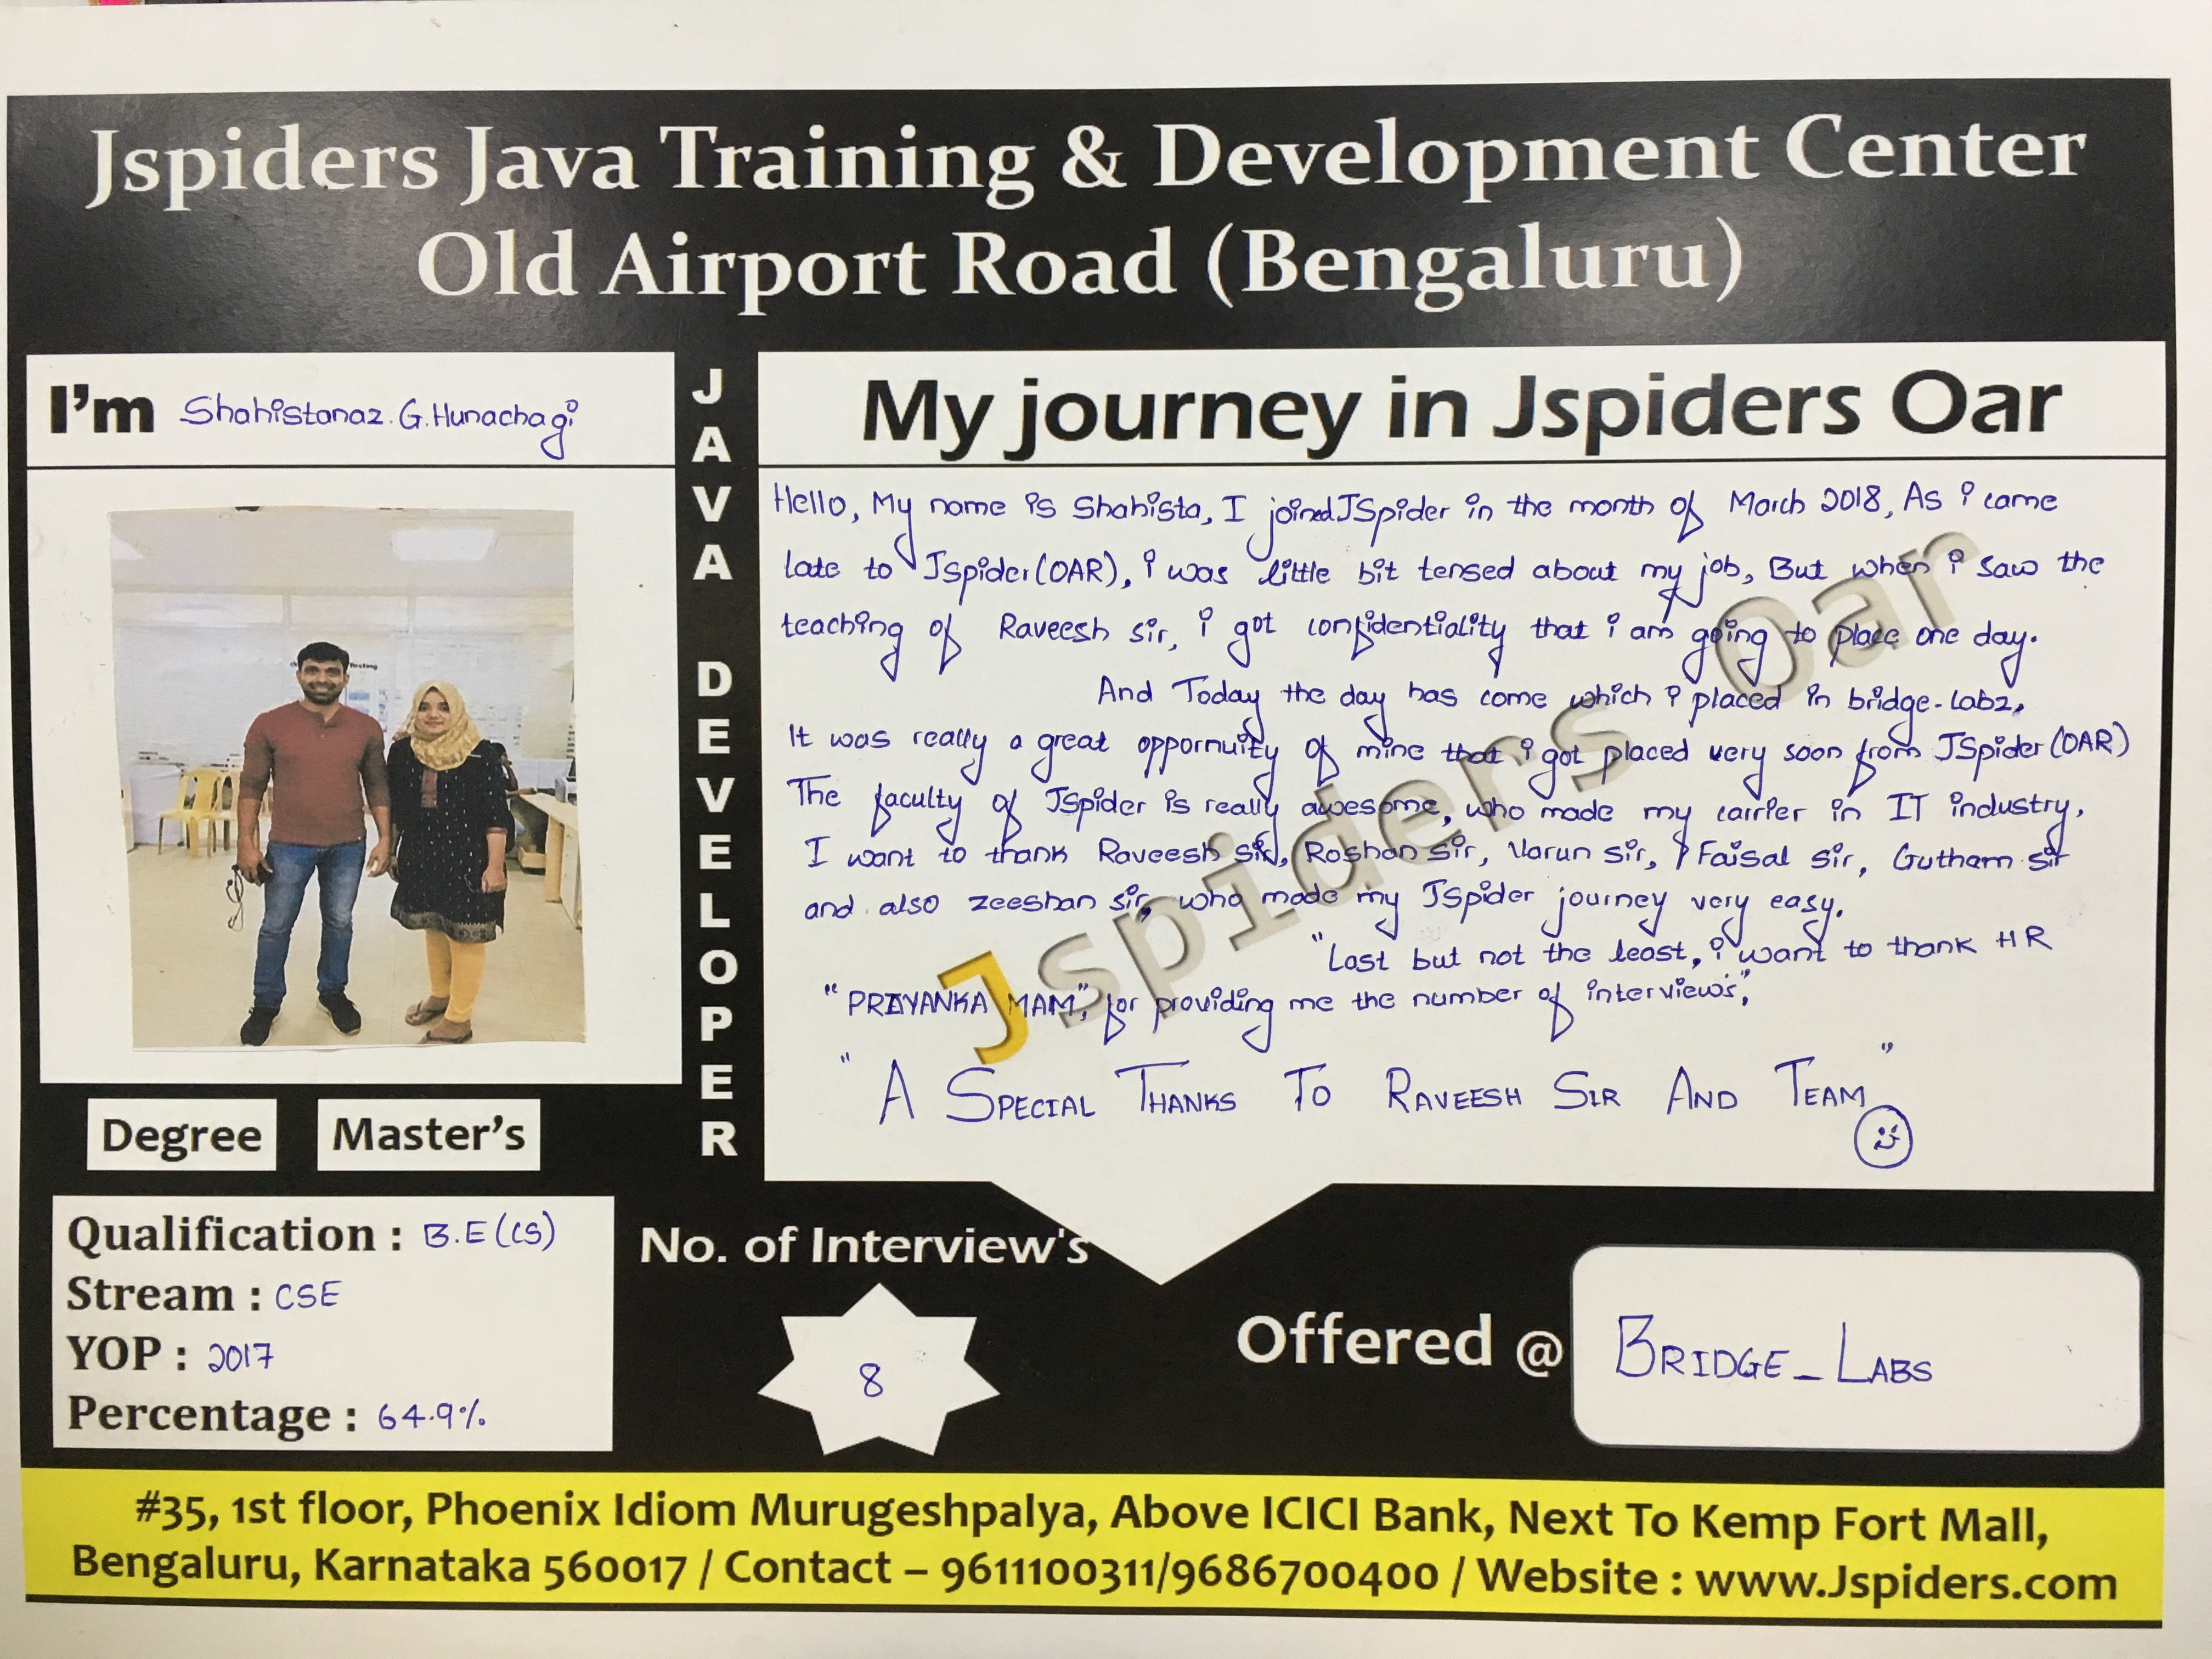 Jspiders Java Training & Development Center
Old Airport Road (Bengaluru)
I'm Shahistanaz.G.Hunachagi
JAVA DEVELOPER
My journey in Jspiders Oar
Hello, My name is Shahista, I joined JSpider in the month of March 2018, As i came
late to JSpider(OAR), i was little bit tensed about my job, But when i saw the
teaching of Raveesh sir, i got confidentiality that i am going to place one day.
And Today the day has come which i placed in bridge-labz,
It was really a great oppornuity of mine that i got placed very soon from JSpider(OAR)
The faculty of JSpider is really awesome, who made my carrier in IT industry,
I want to thank Raveesh sir, Roshan sir, Varun sir, Faisal sir, Gutham sir
and also zeeshan sir, who made my JSpider journey very easy.
"Last but not the least, i want to thank HR
"PRIYANKA MAM", for providing me the number of interviews",
"A SPECIAL THANKS TO RAVEESH SIR AND TEAM"
Jspiders Oar
Degree Master's
Qualification : B.E(CS)
Stream : CSE
YOP : 2017
Percentage : 64.9%
No. of Interview's
8
Offered @ BRIDGE_LABS
#35, 1st floor, Phoenix Idiom Murugeshpalya, Above ICICI Bank, Next To Kemp Fort Mall,
Bengaluru, Karnataka 560017 / Contact – 9611100311/9686700400 / Website : www.Jspiders.com